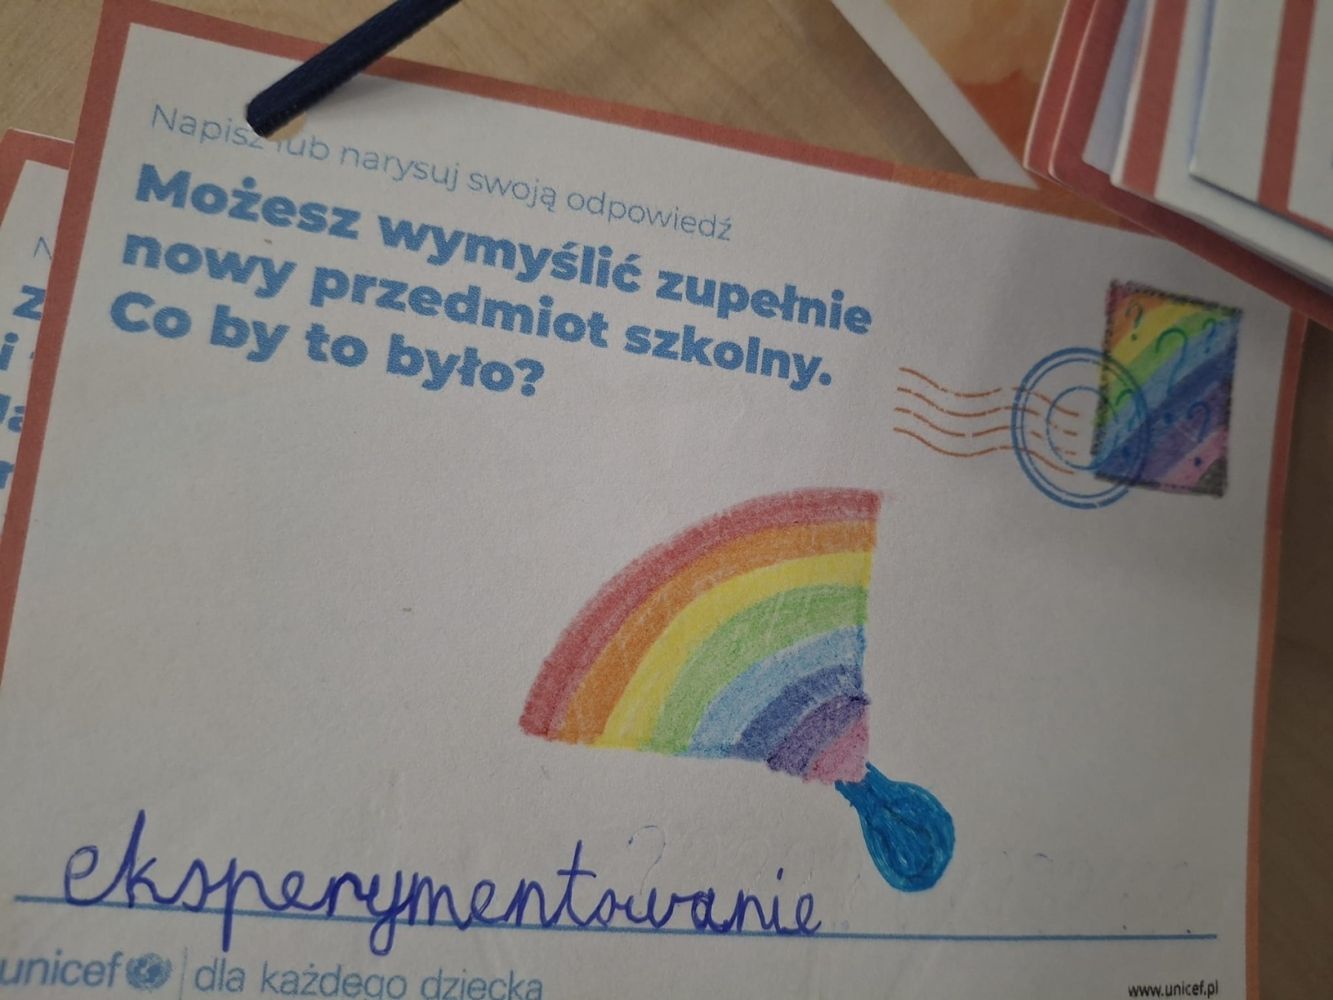 Napisz lub narysuj swoją odpowiedź
Możesz wymyślić zupełnie
nowy przedmiot szkolny.
Co by to było?
? ? ?
eksperymentowanie
unicef dla każdego dziecka
www.unicef.pl